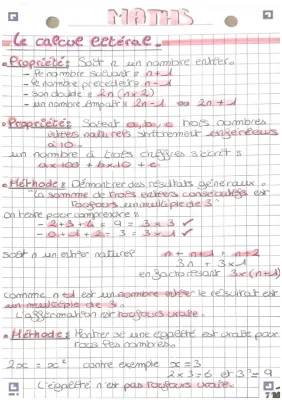 MATHS
Le calcul littéral.
• Propriété : Soit n un nombre entier.
- le nombre suivant : n+1
- le nombre précédent : n-1
- son double : 2n (n×2)
- un nombre impair : 2n-1 ou 2n+1
• Propriété : Soient a, b, c trois nombres
entiers naturels strictement inférieurs
à 10.
un nombre à trois chiffres s'écrit :
a×100 + b×10 + c
• Méthode : Démontrer des résultats généraux.
"la somme de trois entiers consécutifs est
toujours un multiple de 3"
On teste pour comprendre :
- 2+3+4 = 9 = 3×3 ✓
- 0+1+2 = 3 = 3×1 ✓
soit n un entier naturel n + n+1 + n+2
3n + 3×1
en factorisant 3×(n+1)
comme n+1 est un nombre entier le résultat est
un multiple de 3.
L'affirmation est toujours vraie.
• Méthode : Montrer si une égalité est vraie pour
tous les nombres.
2x = x² contre exemple x=3
2×3=6 et 3²=9
L'égalité n'est pas toujours vraie.